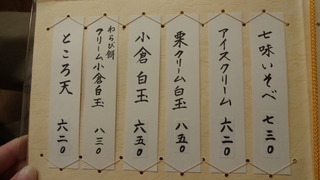 七味いそべ 七三〇
アイスクリーム 六二〇
栗クリーム白玉 八五〇
小倉白玉 六五〇
わらび餅
クリーム小倉白玉 八三〇
ところ天 六二〇